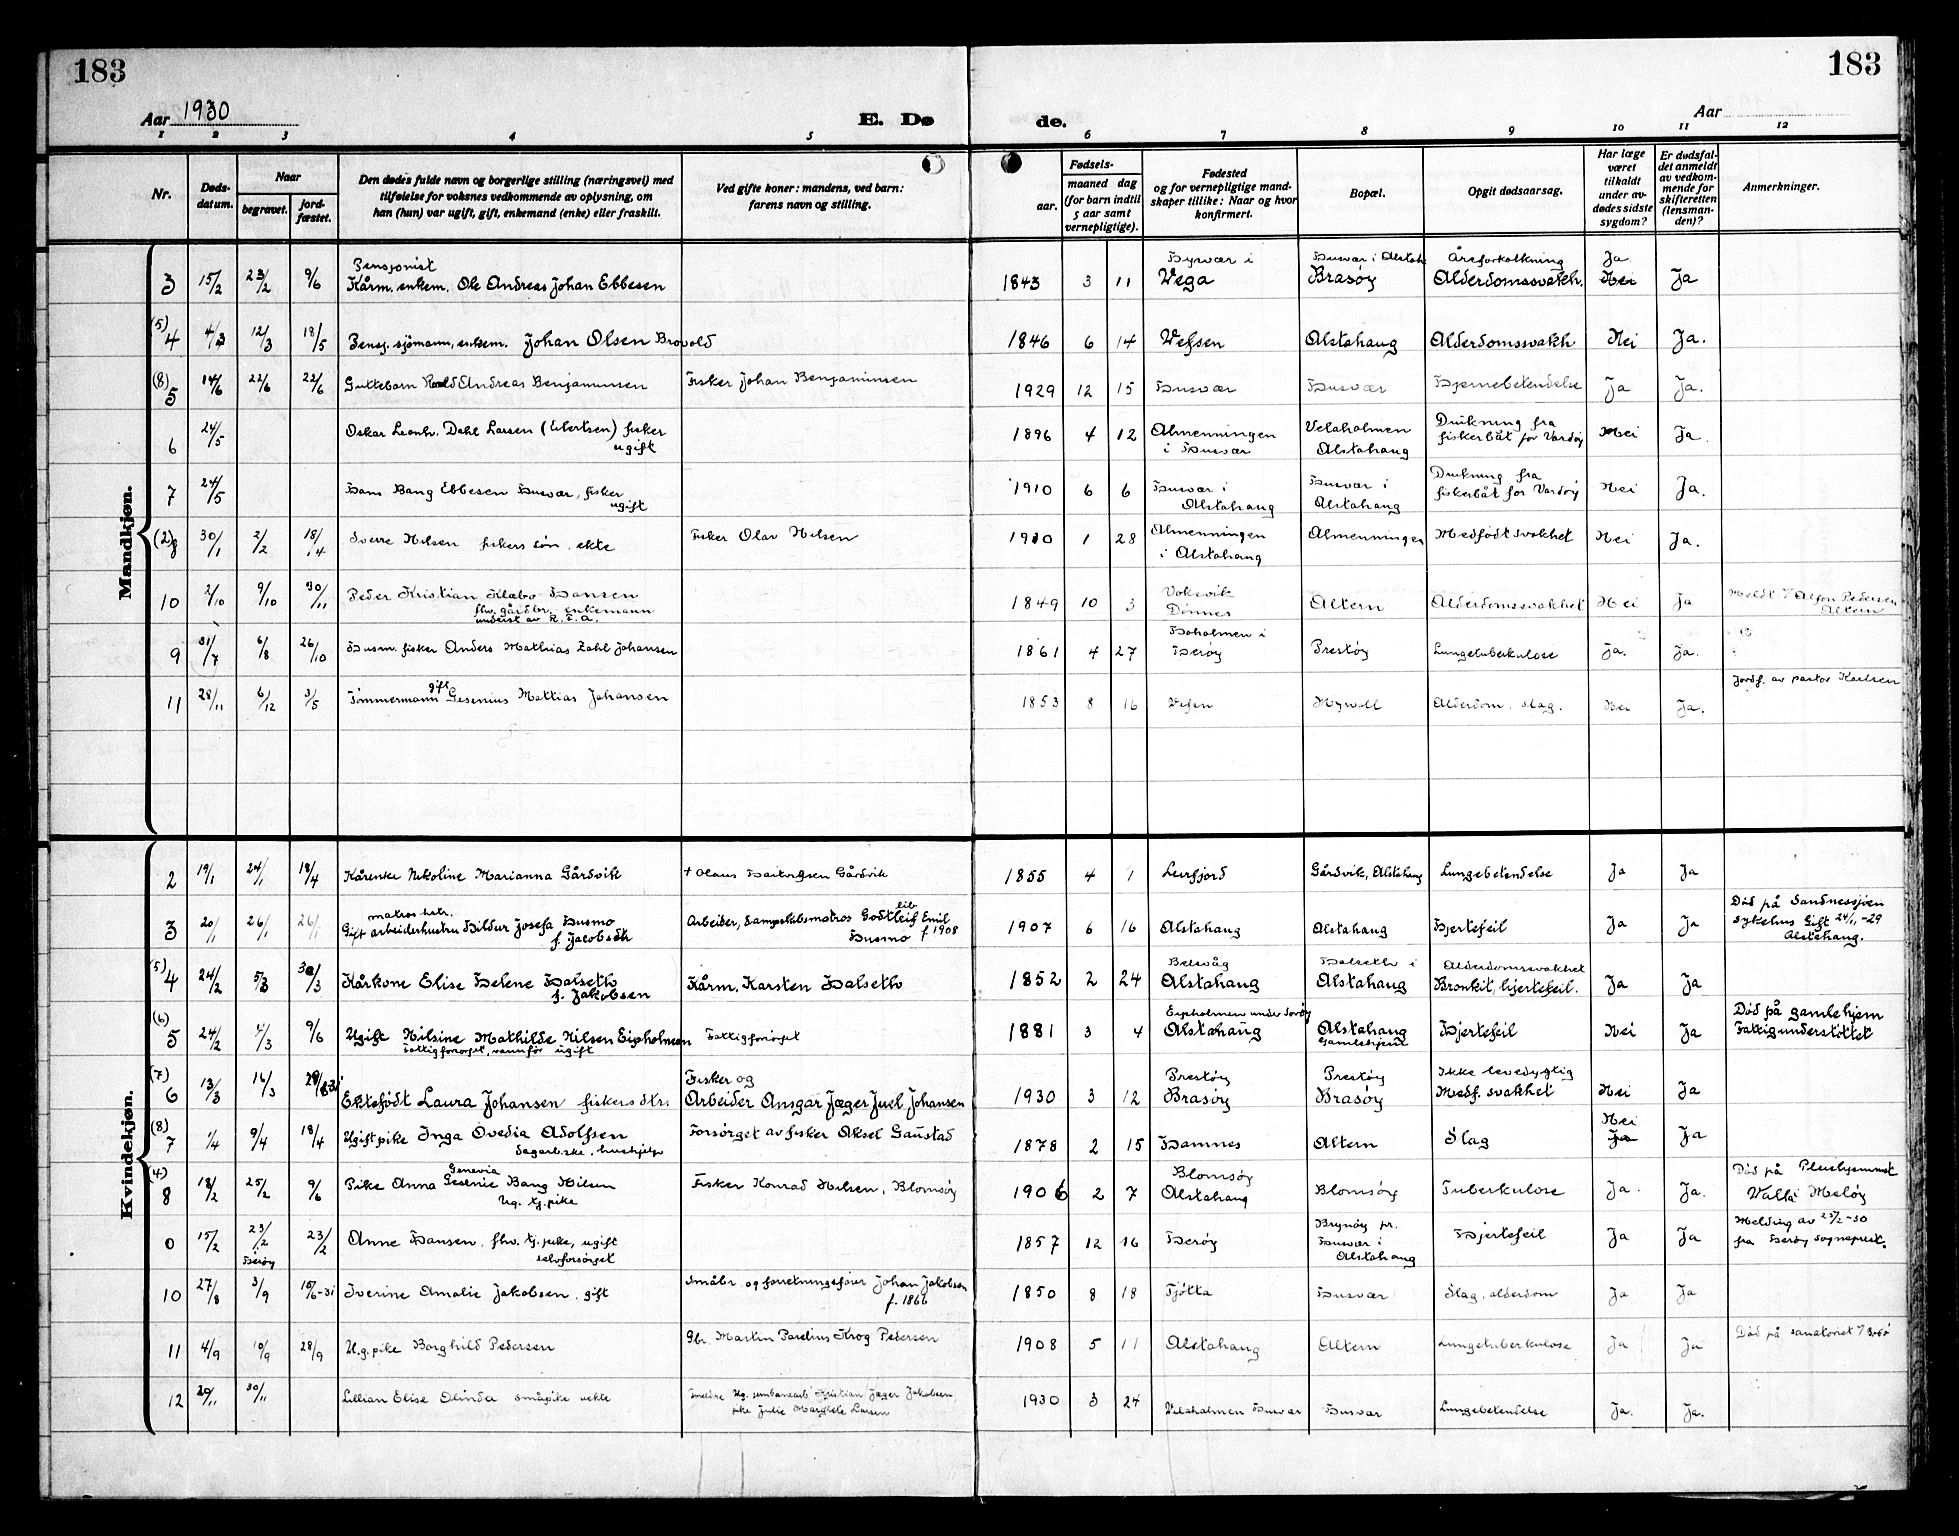 183
183
Aar 1930
E. Dø
de.
Aar
1 2 3 4 5 6 7 8 9 10 11 12
Nr.
Døds-
datum.
Naar
begravet.
jord-
fæstet.
Den dødes fulde navn og borgerlige stilling (næringsvei) med
tilføielse for voksnes vedkommende av oplysning, om
han (hun) var ugift, gift, enkemand (enke) eller fraskilt.
Ved gifte koner: mandens, ved barn:
farens navn og stilling.
Fødsels-
aar.
maaned dag
(for barn indtil
5 aar samt
vernepligtige).
Fødested
og for vernepligtige mand-
skaper tillike: Naar og hvor
konfirmert.
Bopæl.
Opgit dødsaarsag.
Har læge
været
tilkaldt
under av-
dødes sidste
sygdom?
Er dødsfal-
det anmeldt
av vedkom-
mende for
skifteretten
(lensman-
den)?
Anmerkninger.
Mandkjøn.
Pensjonist Husvær i Alstah Åreforkalkning Ja
3 15/2 23/2 9/6 Kårm. enkem. Ole Andreas Johan Ebbesen 1843 3 11 Vega Brasøy Alderdomssvakh. Nei Ja
(5) 4 4/3 12/3 18/5 Pensj. sjømann, enkem. Johan Olsen Brovold 1846 6 14 Vefsen Alstahaug Alderdomssvakh Nei Ja.
(8) 5 14/6 22/6 22/6 Guttebarn Andreas Benjaminsen Fisker Johan Benjaminsen 1929 12 15 Husvær Husvær Hjernebetendelse Ja Ja.
6 24/5 Oskar Leonh. Dahl Larsen (Ebertsen) fisker 1896 4 12 Almenningen Velaholmen Drukning fra Nei Ja.
ugift i Husvær Alstahaug fiskerbåt for Vardøy
7 24/5 Hans Bang Ebbesen Husvær, fisker 1910 6 6 Husvær i Husvær i Drukning fra Nei Ja.
ugift Alstahaug Alstahaug fiskerbåt for Vardøy
(2) 8 30/1 2/2 18/4 Sverre Nilsen fiskers søn, ekte Fisker Olav Nilsen 1930 1 28 Almenningen Almenningen Medfødt svakhet Nei Ja.
i Alstahaug
10 2/10 9/10 30/11 Peder Kristian Klæbo Hansen 1849 10 3 Voksvik Altern Alderdomssvakhet Nei Ja Meldt Alfon Pedersen
fhv. gårdbr. enkemann Dønnes Altern
underst av
9 31/7 6/8 26/10 Husm. fisker Anders Mathias Zahl Johansen 1861 4 27 Hoholmen i Prestøy Lungetuberkulose Ja. Ja.
Herøy
gift Jordf. av pastor Karlsen
11 28/11 6/12 3/5 Tømmermann Gesenius Mattias Johansen 1853 8 16 Vefsen Alderdom, slag. Nei Ja.
Kvindekjøn.
2 19/1 24/1 18/4 Kårenke Nikoline Marianna Gårdvik + Olaus Hartvigsen Gårdvik 1855 4 1 Leirfjord Gårdvik, Alstahaug Lungebetendelse Ja Ja
matros hstr. Død på Sandnessjøen
3 20/1 26/1 26/1 Gift arbeiderhustru Hildur Josefa Husmo Arbeider, dampskibsmatros Godtleif Emil 1907 6 16 Alstahaug Alstahaug Hjertefeil Ja Ja sykehus Gift 24/1-29
f. Jacobsdtr Husmo f 1908 Alstahaug.
Belsvåg Halseth i Alderdomssvakhet
(5) 4 24/2 5/3 30/3 Kårkone Elise Helene Halseth Kårm. Karsten Halseth 1852 2 24 Alstahaug Alstahaug Bronkit, hjertefeil. Ja Ja
f. Jakobsen
Død på gamlehjem
(6) 5 24/2 1/3 9/6 Ugift Nilsine Mathilde Nilsen Eipholmen Fattigforsørget 1881 3 4 Alstahaug Alstahaug Hjertefeil Nei Ja Fattigunderstøttet
Fattigforsørget, vannfør ugift Gamlehjem
Fisker og Prestøy Prestøy Ikke levedygtig
(7) 6 13/3 16/3 Ektefødt Laura Johansen fiskers dtr. Arbeider Ansgar Jæger Juel Johansen 1930 3 12 Brasøy Brasøy Medf. svakhet Nei Ja
Nei
(8) 7 1/4 9/4 18/4 Ugift pike Inga Ovedia Adolfsen Forsørget av fisker Aksel Gaustad 1878 2 15 Hamnes Altern Slag Ja Ja
hushjelp
Genevia Blomsøy Død på Pleiehjemmet
(4) 8 18/2 25/2 9/6 Pike Anna Gesenie Bang Nilsen Fisker Konrad Nilsen, Blomsøy 1906 2 7 Alstahaug Blomsøy Tuberkulose Ja. Ja. Valla Meløy
Ug. tj.pike
0 15/2 23/2 Herøy 23/2 Anne Hansen, fhv. tj. pike, ugift 1857 12 16 Herøy Brynøy pr. Hjertefeil Ja Ja Melding av 25/2-30
selvforsørget Husvær i fra Herøy sogneprest.
Alstahaug
10 27/8 3/9 15/6-31 Iverine Amalie Jakobsen, gift Småbr. og forretningsfører Johan Jakobsen 1850 8 18 Tjøtta Husvær Slag, alderdom Ja Ja
f. 1866
11 4/9 10/9 28/9 U.g. pike Borghild Pedersen Gbr. Martin Parelius Krog Pedersen 1908 5 11 Alstahaug Altern Lungetuberkulose Ja Ja Død på sanatoriet i Bodø
12 29/11 30/11 Lillian Elise Olinda småpike uekte Kristian Jæger Jakobsen, 1930 3 24 Velaholmen Husvær Husvær Lungebetendelse Ja. Ja.
pike Julie Margrete Larsen